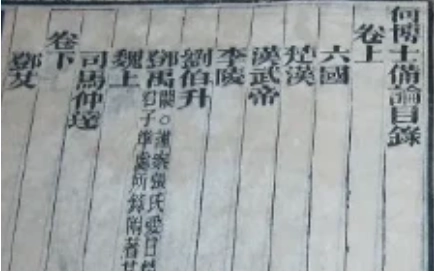 何博士備論目錄
卷上
六國
楚漢
漢武帝
李陵
劉伯升
鄧禹 闕○謝家張氏愛日
子準處所錄附著
魏上
司馬仲達
卷下
鄧艾